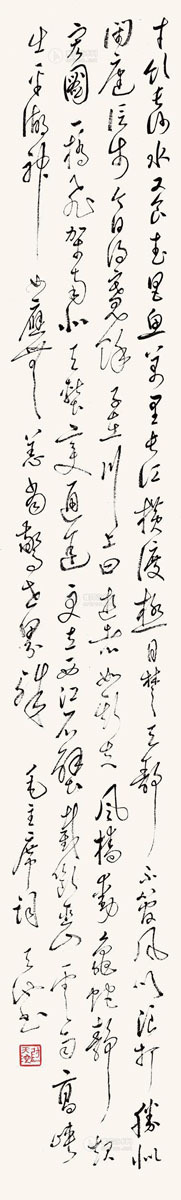 才饮长沙水又食武昌鱼万里长江横渡极目楚天舒不管风吹浪打勝似
闲庭信步今日得宽馀子在川上曰逝者如斯夫风樯动龟蛇静起
宏圖一桥飞架南北天堑变通途更立西江石壁截断巫山云雨高峡
出平湖神女应無恙当驚世界殊 毛主席词 书